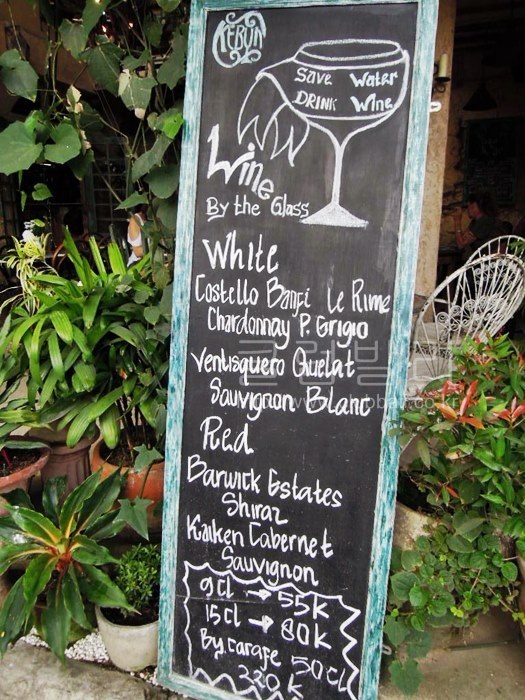 KEBUN
Save Water
DRINK Wine
Wine
By the Glass
White
Costello Banfi Le Rime
Chardonnay P. Grigio
Ventisquero Quelat
Sauvignon Blanc
Red
Barwick Estates
Shiraz
Kaiken Cabernet
Sauvignon
9cl → 55K
15cl → 80K
By carafe 50cl
320K